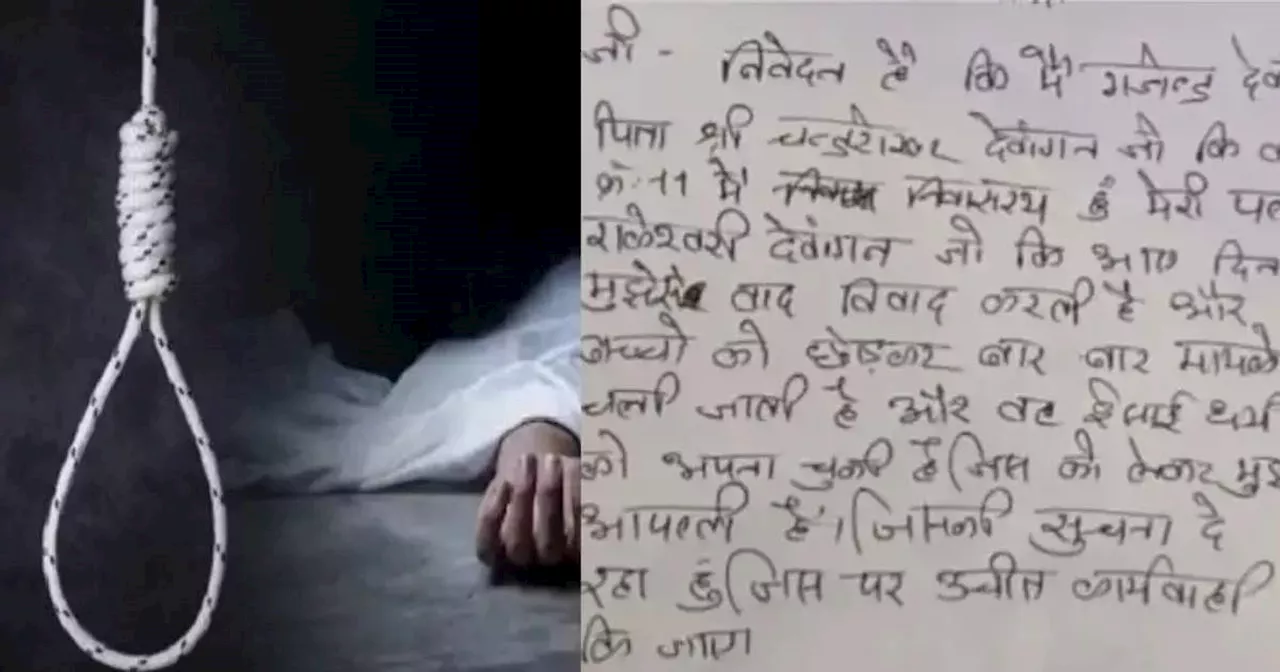 जी - निवेदन है कि मैं गजेन्द्र
पिता श्री चन्द्रशेखर देवांगन जो कि
क्र. 11 में निवासरथ हुं मेरी
राजेश्वरी देवांगन जो कि आए दिन
मुझेसे वाद विवाद करती है और
बच्चो को छोड़कर बार बार मायके
चली जाती है और वह ईसाई धर्म
को अपना चुकी है जिस को लेकर
आपत्ती है। जिसकी सुचना दे
रहा हुं जिस पर उचीत कार्यवाही
कि जाए